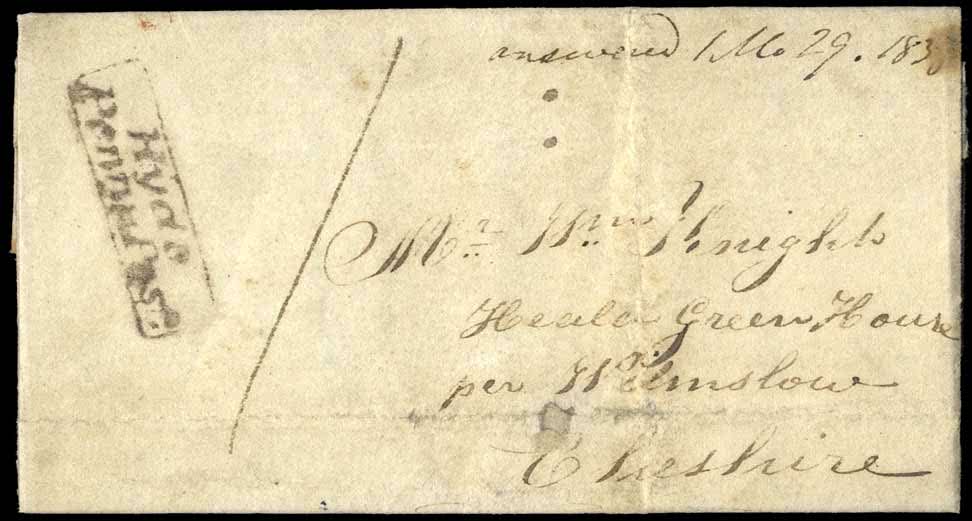 answered 1 Mo 29. 183
Hyde
Penny Post
Mr. Wm Knight
Heald Green House
per Wilmslow
Cheshire